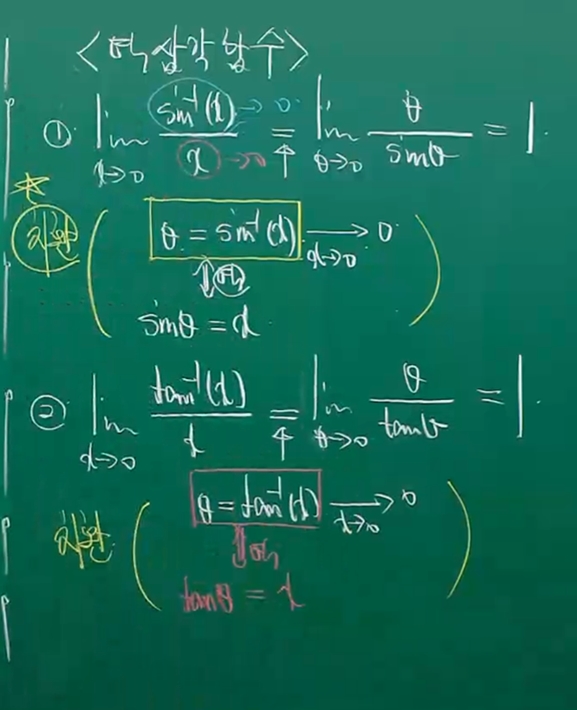 <역삼각함수>
① lim x→0 sin⁻¹(x)/x = lim θ→0 θ/sinθ = 1.
sin⁻¹(x) → 0
x → 0
↑
☆
치환 ( θ = sin⁻¹(x) → 0 x→0 )
⇕ 역
sinθ = x
② lim x→0 tan⁻¹(x)/x = lim θ→0 θ/tanθ = 1.
↑
치환 ( θ = tan⁻¹(x) → 0 x→0 )
⇕ 역
tanθ = x